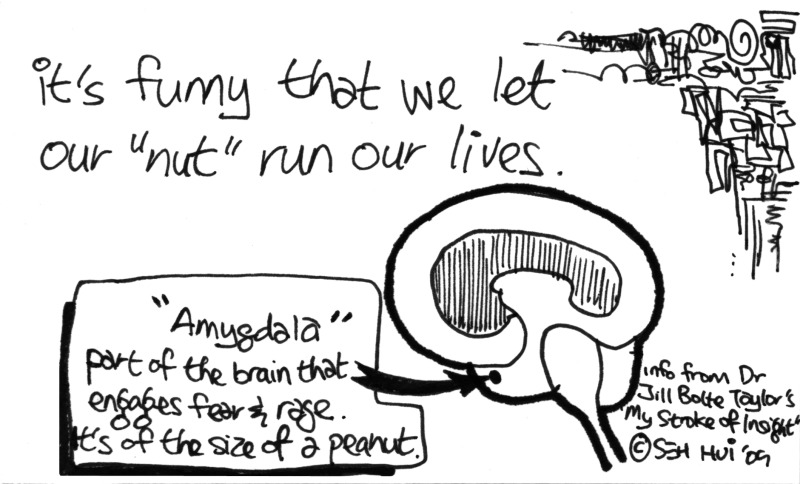 it's funny that we let
our "nut" run our lives.
"Amygdala"
part of the brain that
engages fear & rage.
It's of the size of a peanut.
info from Dr
Jill Bolte Taylor's
"My Stroke of Insight"
© SEH HUI '09